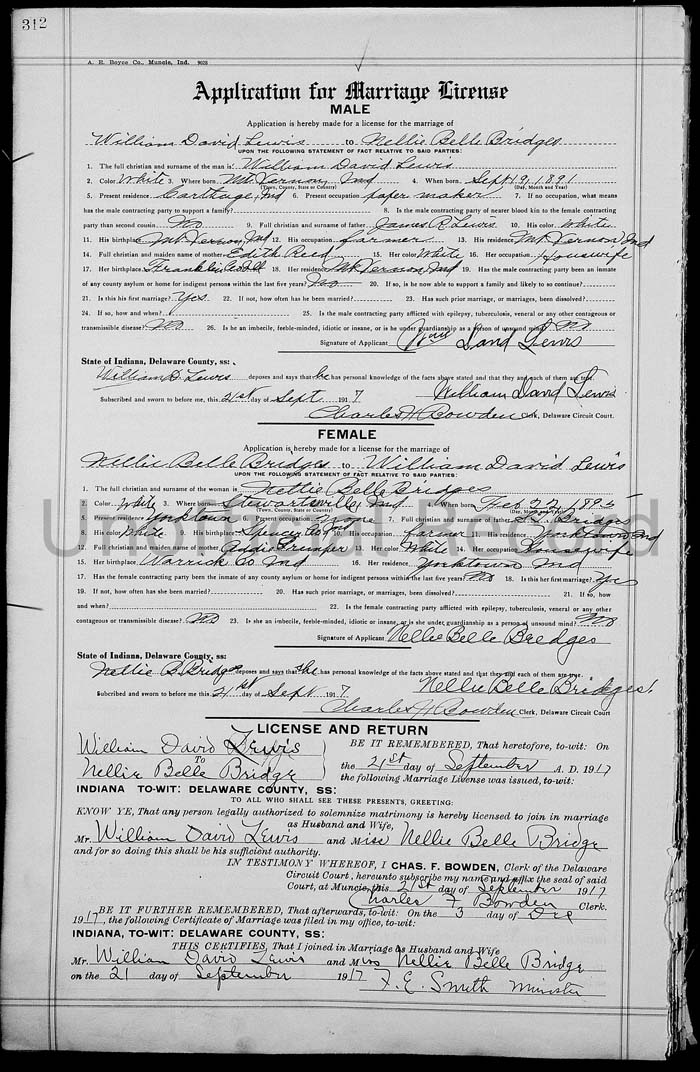 312
A. R. Boyce Co., Muncie, Ind. 9028
Application for Marriage License
MALE
Application is hereby made for a license for the marriage of
William David Lewis to Nellie Belle Bridges
UPON THE FOLLOWING STATEMENT OF FACT RELATIVE TO SAID PARTIES:
1. The full christian and surname of the man is William David Lewis
2. Color White 3. Where born Mt. Vernon, Ind 4. When born Sept 19, 1891
(Town, County, State or Country) (Day, Month and Year)
5. Present residence Carthage, Ind 6. Present occupation paper maker 7. If no occupation, what means
has the male contracting party to support a family? 8. Is the male contracting party of nearer blood kin to the female contracting
party than second cousin No 9. Full christian and surname of father James R Lewis 10. His color White
11. His birthplace Mt Vernon, Ind 12. His occupation farmer 13. His residence Mt Vernon Ind
14. Full christian and maiden name of mother Edith Reed 15. Her color White 16. Her occupation Housewife
17. Her birthplace Franklin Co Ill 18. Her residence Mt Vernon, Ind 19. Has the male contracting party been an inmate
of any county asylum or home for indigent persons within the last five years? No 20. If so, is he now able to support a family and likely to so continue?
21. Is this his first marriage? Yes 22. If not, how often has he been married? 23. Has such prior marriage, or marriages, been dissolved?
24. If so, how and when? 25. Is the male contracting party afflicted with epilepsy, tuberculosis, veneral or any other contagious or
transmissible disease? No 26. Is he an imbecile, feeble-minded, idiotic or insane, or is he under guardianship as a person of unsound mind? No
Signature of Applicant David Lewis
State of Indiana, Delaware County, ss:
William D Lewis deposes and says that he has personal knowledge of the facts above stated and that they and each of them are true.
William David Lewis
Subscribed and sworn to before me, this 21st day of Sept 1917
Charles H Bowden Clerk, Delaware Circuit Court.
FEMALE
Application is hereby made for a license for the marriage of
Nellie Belle Bridges to William David Lewis
UPON THE FOLLOWING STATEMENT OF FACT RELATIVE TO SAID PARTIES:
1. The full christian and surname of the woman is Nettie Belle Bridges
2. Color White 3. Where born Stewartsville, Ind 4. When born Feb 22, 189
(Town, County, State or Country) (Day, Month and Year)
5. Present residence Yorktown 6. Present occupation None 7. Full christian and surname of father Bridges
8. His color White 9. His birthplace Spencer Co Ind 10. His occupation farmer 11. His residence Yorktown Ind
12. Full christian and maiden name of mother Addie 13. Her color White 14. Her occupation Housewife
15. Her birthplace Warrick Co Ind 16. Her residence Yorktown Ind
17. Has the female contracting party been an inmate of any county asylum or home for indigent persons within the last five years? No 18. Is this her first marriage? Yes
19. If not, how often has she been married? 20. Has such prior marriage, or marriages, been dissolved? 21. If so, how
and when? 22. Is the female contracting party afflicted with epilepsy, tuberculosis, veneral or any other
contagious or transmissible disease? No 23. Is she an imbecile, feeble-minded, idiotic or insane, or is she under guardianship as a person of unsound mind? No
Signature of Applicant Nellie Belle Bredges
State of Indiana, Delaware County, ss:
Nellie B Bridges deposes and says that she has personal knowledge of the facts above stated and that they and each of them are true.
Nellie Belle Bridges
Subcribed and sworn to before me, this 21st day of Sept 1917
Charles H Bowden Clerk, Delaware Circuit Court
Unofficial Record
LICENSE AND RETURN
William David Lewis
To
Nellie Belle Bridge
BE IT REMEMBERED, That heretofore, to-wit: On
the 21st day of September A. D. 1917
the following Marriage License was issued, to-wit:
INDIANA TO-WIT: DELAWARE COUNTY, SS:
TO ALL WHO SHALL SEE THESE PRESENTS, GREETING:
KNOW YE, That any person legally authorized to solemnize matrimony is hereby licensed to join in marriage
as Husband and Wife,
Mr. William David Lewis and Miss Nellie Belle Bridge
and for so doing this shall be his sufficient authority.
IN TESTIMONY WHEREOF, I CHAS. F. BOWDEN, Clerk of the Delaware
Circuit Court, hereunto subscribe my name and affix the seal of said
Court, at Muncie, this 21st day of September 1917
Charles F Bowden Clerk.
BE IT FURTHER REMEMBERED, That afterwards, to-wit: On the 3 day of Dec
1917, the following Certificate of Marriage was filed in my office, to-wit:
INDIANA, TO-WIT: DELAWARE COUNTY, SS:
THIS CERTIFIES, That I joined in Marriage as Husband and Wife
Mr. William David Lewis and Miss Nellie Belle Bridge
on the 21 day of September 1917 F. E. Smith Minister